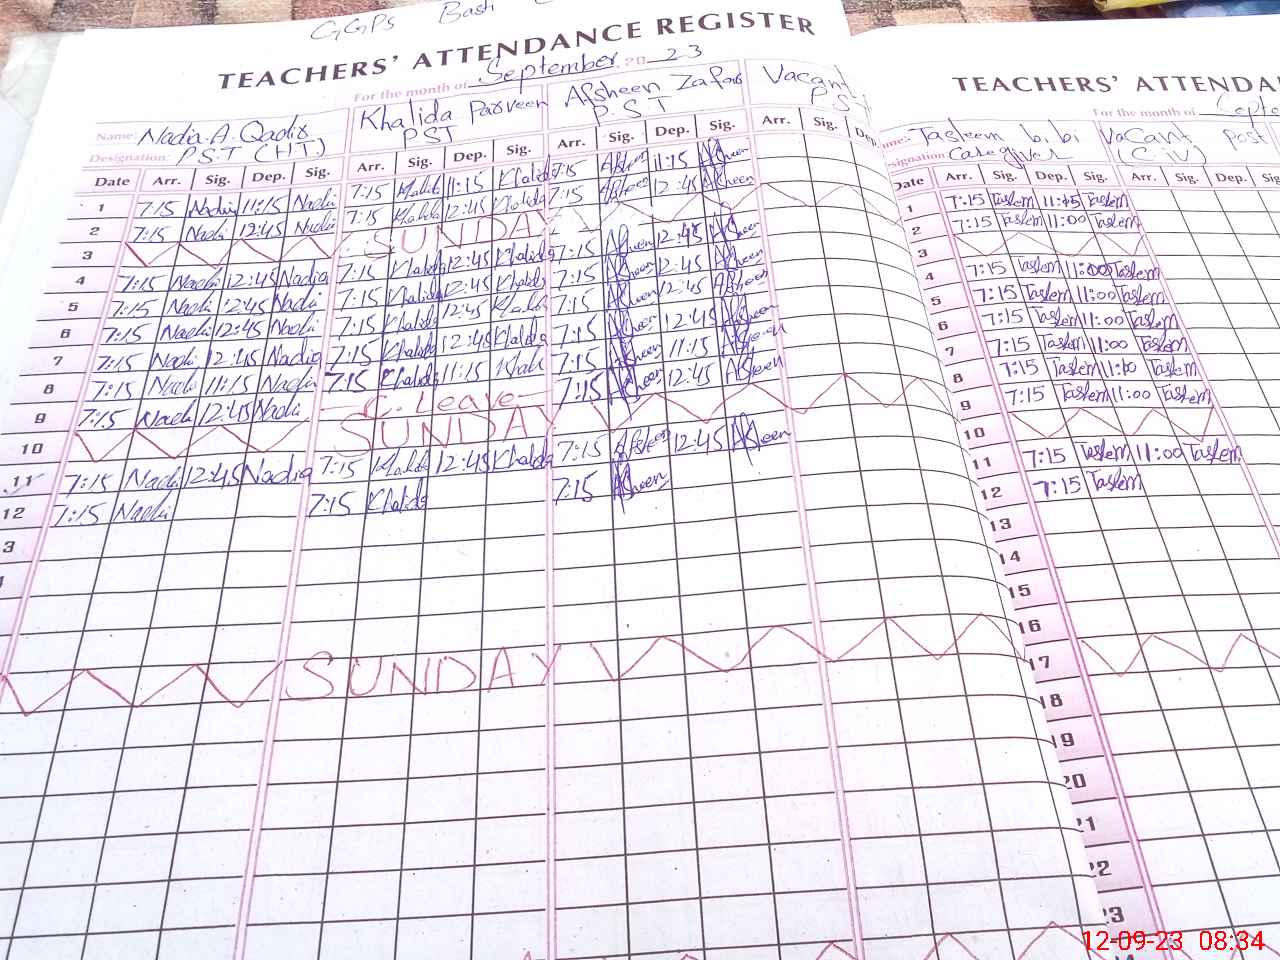 GGPS Bash
TEACHERS' ATTENDANCE REGISTER
For the month of September 2023
Name: Nadia.A.Qadir Khalida Parveen Afsheen Zafar Vacant
Designation: P.S.T (H.T) PST P.S.T P.S.T
Date Arr. Sig. Dep. Sig. Arr. Sig. Dep. Sig. Arr. Sig. Dep. Sig. Arr. Sig. Dep.
1 7:15 Nadia 11:15 Nadi 7:15 Khalida 11:15 Khalida 7:15 Afsheen 11:15 Afsheen
2 7:15 Nadi 12:45 Nadi 7:15 Khalida 12:45 Khalida 7:15 Afsheen 12:45 Afsheen
3 SUNDAY
4 7:15 Nadi 12:45 Nadia 7:15 Khalida 12:45 Khalida 7:15 Afsheen 12:45 Afsheen
5 7:15 Nadi 12:45 Nadi 7:15 Khalida 12:45 Khalida 7:15 Afsheen 12:45 Afsheen
6 7:15 Nadi 12:45 Nadi 7:15 Khalida 12:45 Khalida 7:15 Afsheen 12:45 Afsheen
7 7:15 Nadi 12:45 Nadia 7:15 Khalida 12:45 Khalida 7:15 Afsheen 12:45 Afsheen
8 7:15 Nadi 11:15 Nadi 7:15 Khalida 11:15 Khali 7:15 Afsheen 11:15 Afsheen
9 7:15 Nadi 12:45 Nadi C. Leave 7:15 Afsheen 12:45 Afsheen
10 SUNDAY
11 7:15 Nadi 12:45 Nadia 7:15 Khalida 12:45 Khalida 7:15 Afsheen 12:45 Afsheen
12 7:15 Nadi 7:15 Khalida 7:15 Afsheen
3
SUNDAY
TEACHERS' ATTENDA
For the month of Septe
Tasleem bibi Vacant Post
Designation Caregiver (C.iv)
Date Arr. Sig. Dep. Sig. Arr. Sig. Dep. Sig.
1 7:15 Taslem 11:45 Taslem
2 7:15 Taslem 11:00 Taslem
3
4 7:15 Taslem 11:00 Taslem
5 7:15 Taslem 11:00 Taslem
6 7:15 Taslem 11:00 Taslem
7 7:15 Taslem 11:00 Taslem
8 7:15 Taslem 11:00 Taslem
9 7:15 Taslem 11:00 Taslem
10
11 7:15 Taslem 11:00 Taslem
12 7:15 Taslem
13
14
15
16
17
18
19
20
21
22
23
12-09-23 08:34